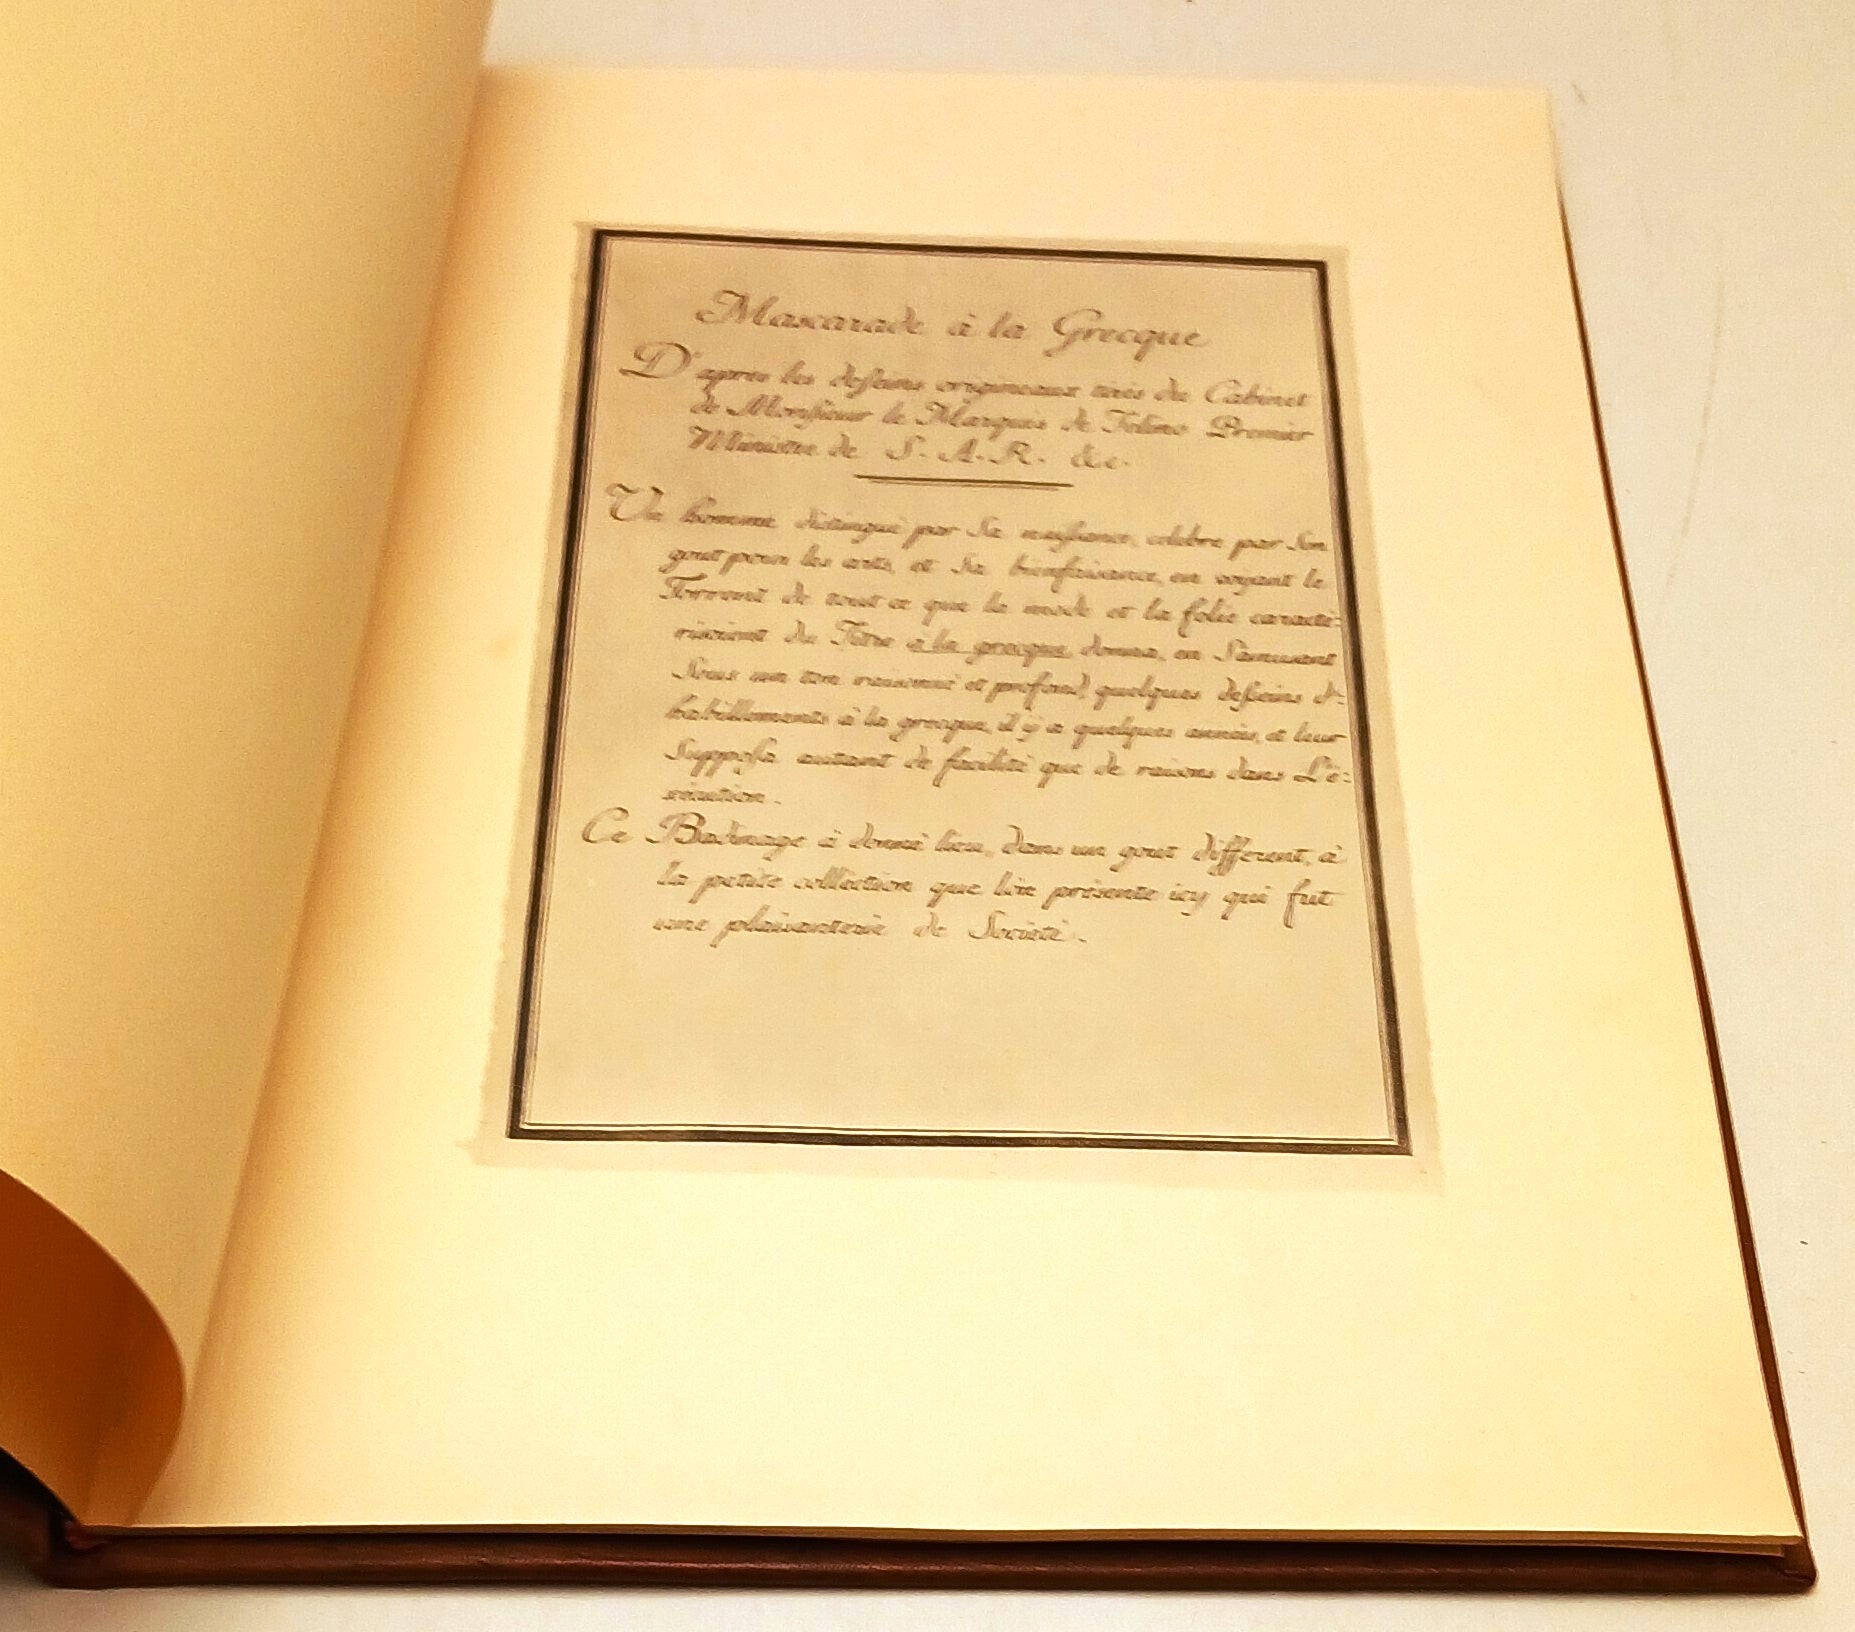 Mascarade à la Grecque
D'apres les deſseins origineaux tirés du Cabinet
de Monſieur le Marquis de Felino Premier
Ministre de S. A. R. &c.
Un homme distingué par Sa naiſsance, celebre par Son
gout pour les arts, et Sa bienfaisance, en voyant le
Torrent de tout ce que la mode et la folie caracté=
risoient du Titre à la grecque donna, en S'amusant
Sous un ton raisonné et profond, quelques deſseins d'=
habillements à la grecque, il y a quelques années, et leur
Suppoſa autant de facilité que de raisons dans L'é=
xécution.
Ce Badinage à donné lieu, dans un gout different, à
la petite collection que l'on présente icy qui fut
une plaisanterie de Societé.